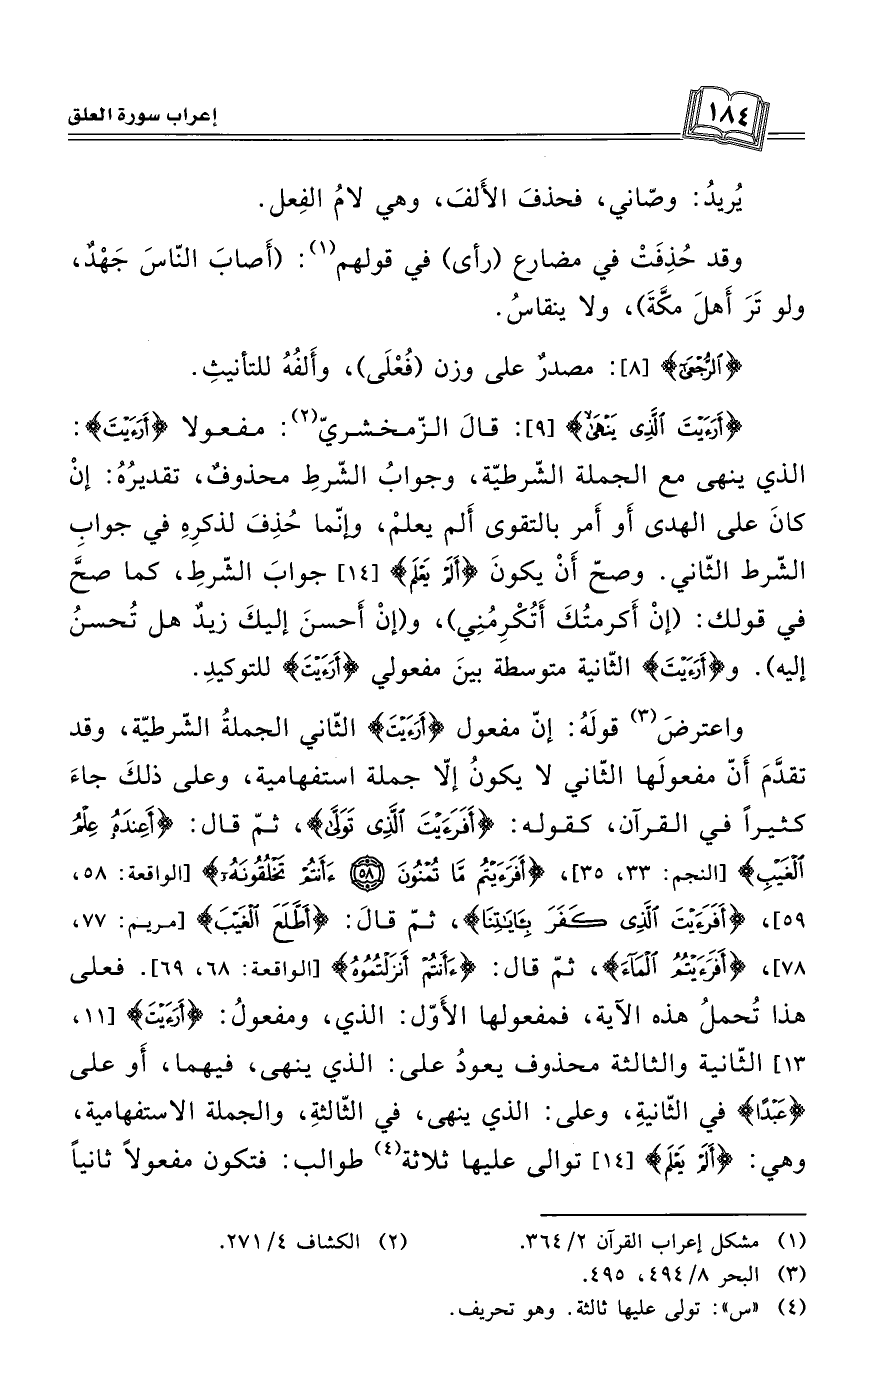 ١٨٤
إعراب سورة العلق
يُريدُ: وصّاني، فحذفَ الأَلفَ، وهي لامُ الفِعل.
وقد حُذِفَتْ في مضارع (رأى) في قولهم(١): (أَصابَ النّاسَ جَهْدٌ،
ولو تَرَ أَهلَ مكَّةَ)، ولا ينقاسُ.
﴿ٱلرُّجۡعَىٰٓ﴾ [٨]: مصدرٌ على وزن (فُعْلَى)، وأَلفُهُ للتأنيثِ.
﴿أَرَءَيۡتَ ٱلَّذِى يَنۡهَىٰ﴾ [٩]: قالَ الزّمخشريّ(٢): مفعولا ﴿أَرَءَيۡتَ﴾:
الذي ينهى مع الجملة الشّرطيّة، وجوابُ الشّرطِ محذوفٌ، تقديرُهُ: إنْ
كانَ على الهدى أَو أَمر بالتقوى أَلم يعلمْ، وإنّما حُذِفَ لذكرِهِ في جوابِ
الشّرط الثّاني. وصحّ أَنْ يكونَ ﴿أَلَمۡ يَعۡلَم﴾ [١٤] جوابَ الشّرطِ، كما صحَّ
في قولك: (إنْ أَكرمتُكَ أَتُكْرِمُنِي)، و(إنْ أَحسنَ إليكَ زيدٌ هل تُحسنُ
إليه). و﴿أَرَءَيۡتَ﴾ الثّانية متوسطة بينَ مفعولي ﴿أَرَءَيۡتَ﴾ للتوكيدِ.
واعترضَ(٣) قولَهُ: إنّ مفعول ﴿أَرَءَيۡتَ﴾ الثّاني الجملةُ الشّرطيّة، وقد
تقدَّمَ أَنّ مفعولَها الثّاني لا يكونُ إلّا جملة استفهامية، وعلى ذلكَ جاءَ
كثيراً في القرآن، كقوله: ﴿أَفَرَءَيۡتَ ٱلَّذِى تَوَلَّىٰ﴾، ثمّ قال: ﴿أَعِندَهُۥ عِلۡمُ
ٱلۡغَيۡبِ﴾ [النجم: ٣٣، ٣٥]، ﴿أَفَرَءَيۡتُم مَّا تُمۡنُونَ ٥٨ ءَأَنتُمۡ تَخۡلُقُونَهُۥٓ﴾ [الواقعة: ٥٨،
٥٩]، ﴿أَفَرَءَيۡتَ ٱلَّذِى كَفَرَ بِـَٔايَٰتِنَا﴾، ثمّ قالَ: ﴿أَطَّلَعَ ٱلۡغَيۡبَ﴾ [مريم: ٧٧،
٧٨]، ﴿أَفَرَءَيۡتُمُ ٱلۡمَآءَ﴾، ثمّ قال: ﴿ءَأَنتُمۡ أَنزَلۡتُمُوهُ﴾ [الواقعة: ٦٨، ٦٩]. فعلى
هذا تُحملُ هذه الآية، فمفعولها الأَوّل: الذي، ومفعولُ: ﴿أَرَءَيۡتَ﴾ [١١،
١٣] الثّانية والثالثة محذوف يعودُ على: الذي ينهى، فيهما، أَو على
﴿عَبۡدًا﴾ في الثّانيةِ، وعلى: الذي ينهى، في الثّالثةِ، والجملة الاستفهامية،
وهي: ﴿أَلَمۡ يَعۡلَم﴾ [١٤] توالى عليها ثلاثة(٤) طوالب: فتكون مفعولاً ثانياً
(١) مشكل إعراب القرآن ٢/ ٣٦٤.
(٢) الكشاف ٤/ ٢٧١.
(٣) البحر ٨/ ٤٩٤، ٤٩٥.
(٤) «س»: تولى عليها ثالثة. وهو تحريف.